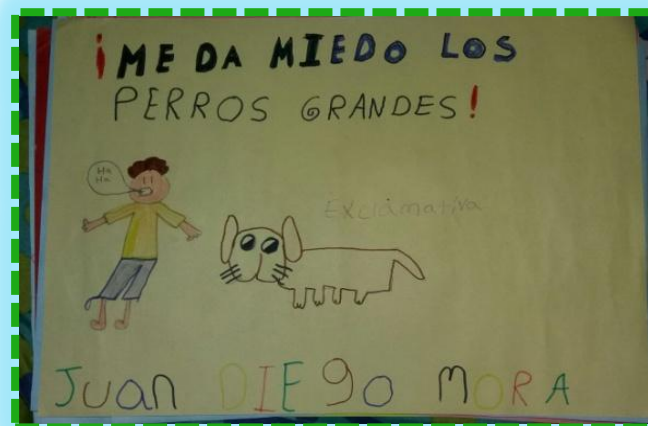 ¡ME DA MIEDO LOS
PERROS GRANDES!
Ha
Ha
Exclamativa
Juan DIEgo MORA